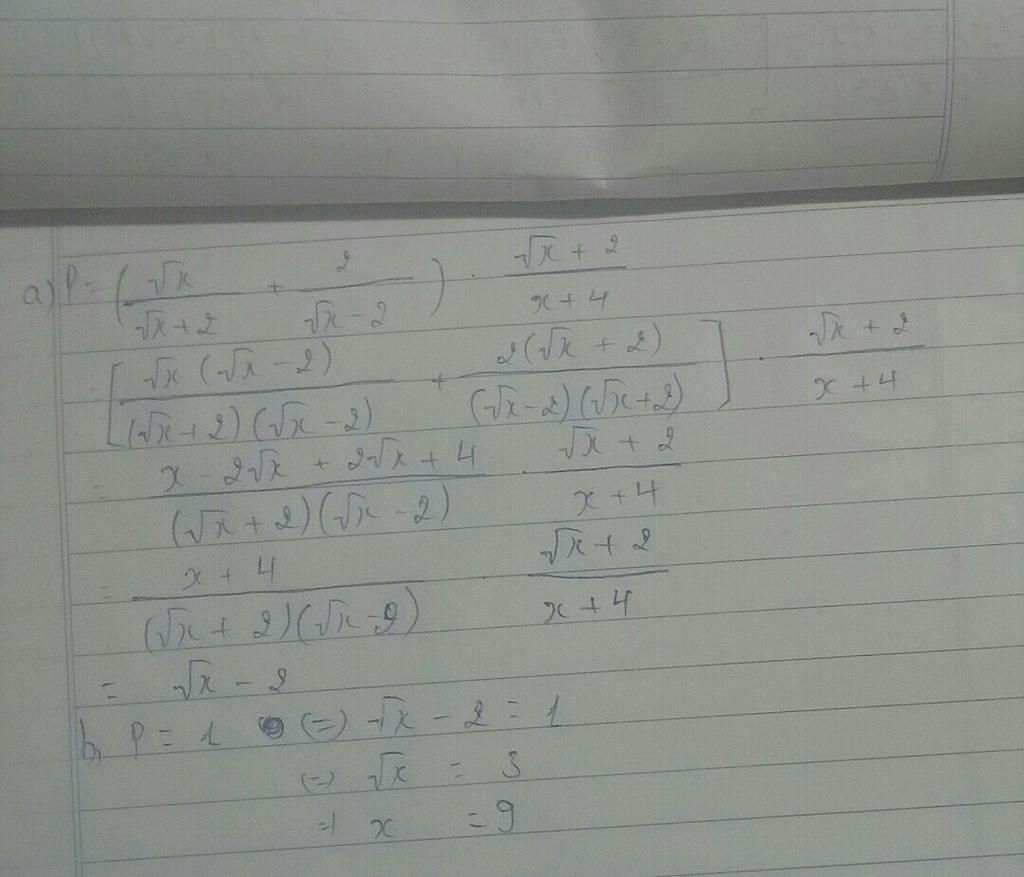 a) P = (√x / (√x + 2) + 2 / (√x - 2)) . (√x + 2) / (x + 4)
= [√x (√x - 2) / ((√x + 2) (√x - 2)) + 2 (√x + 2) / ((√x - 2) (√x + 2))] . (√x + 2) / (x + 4)
= (x - 2√x + 2√x + 4) / ((√x + 2) (√x - 2)) . (√x + 2) / (x + 4)
= (x + 4) / ((√x + 2) (√x - 2)) . (√x + 2) / (x + 4)
= √x - 2
b, P = 1 (=) √x - 2 = 1
(=) √x = 3
=) x = 9